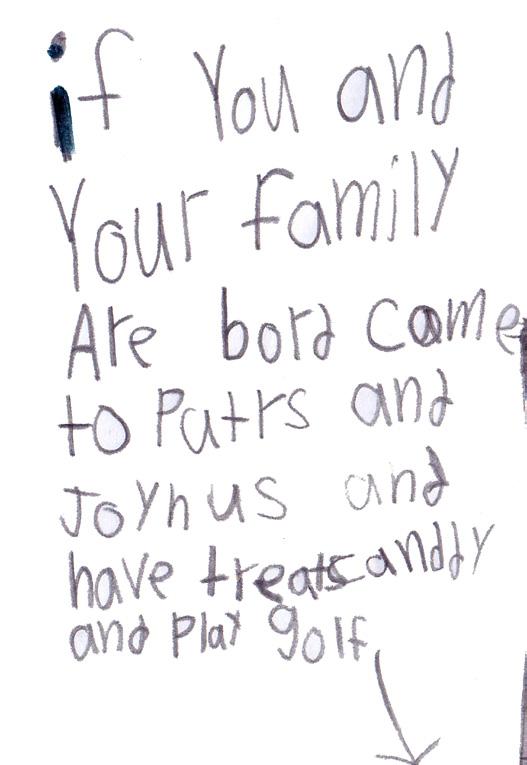 if You and
Your family
Are bord came
to Putrs and
Joyn us and
have treats canddy
and Play golf